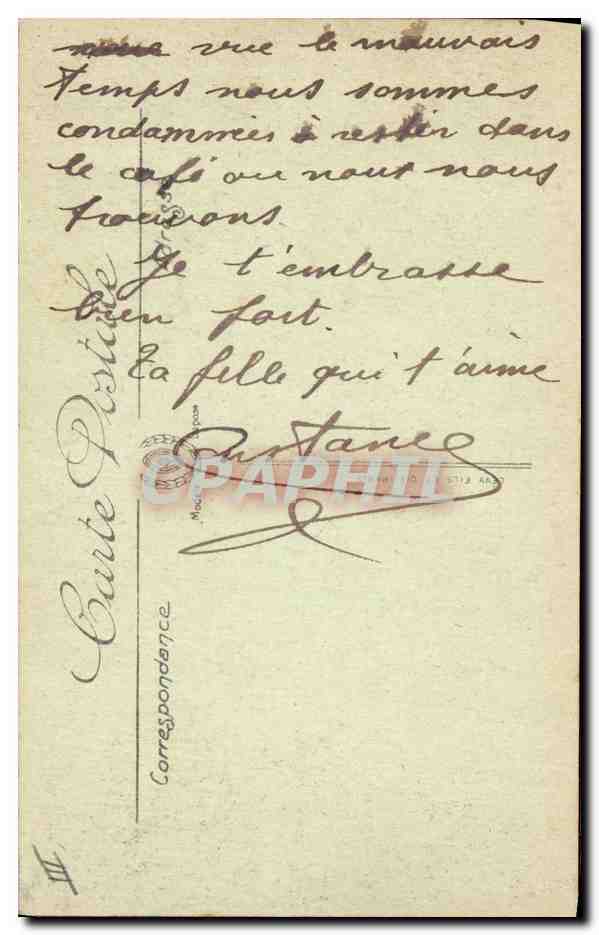 vue le mauvais
temps nous sommes
condamnées à rester dans
le café ou nous nous
trouvons.
Je t'embrasse
bien fort.
Ta fille qui t'aime
Constance
CPAPHIL
Carte Postale
Correspondance
Adresse
III